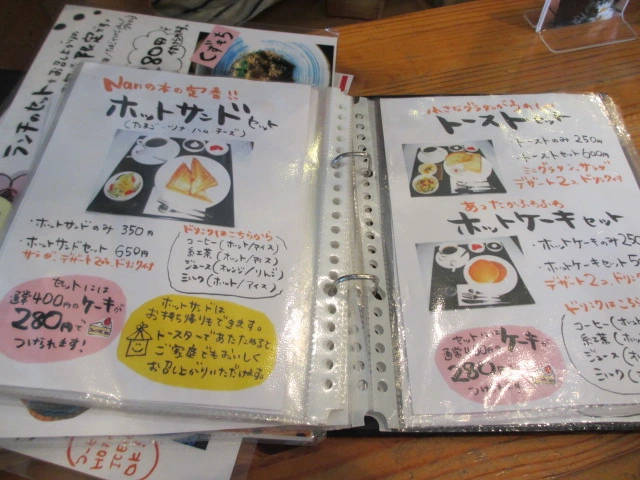 くずもち
80円
ランチのセットをお召し上がり
Nanの木の定番!!
ホットサンドセット
(たまご・ツナ・ハム・チーズ)
・ホットサンドのみ 350円
・ホットサンドセット 650円
サラダ、デザート2つ、ドリンク付
ドリンクはこちらから
コーヒー(ホット/アイス)
紅茶(ホット/アイス)
ジュース(オレンジ/りんご)
ミルク(ホット/アイス)
セットには
通常400円のケーキが
280円で
つけられます!
ホットサンドは
お持ち帰りもできます。
トースターであたためると
ご家庭でもおいしく
お召し上がりいただけます。
HOT
ICE
OK!
小さなグラタンがうれしい
トーストセット
・トーストのみ 250円
・トーストセット 600円
ミニグラタン、サラダ
デザート2つ、ドリンク付
あったかふわふわ
ホットケーキセット
・ホットケーキのみ 250
・ホットケーキセット 5
デザート2つ、ドリ
ドリンクはこち
コーヒー(ホッ
紅茶(ホ
ジュース(オ
ミルク(ホ
セットには
通常400円のケーキが
280円で
つけられます!